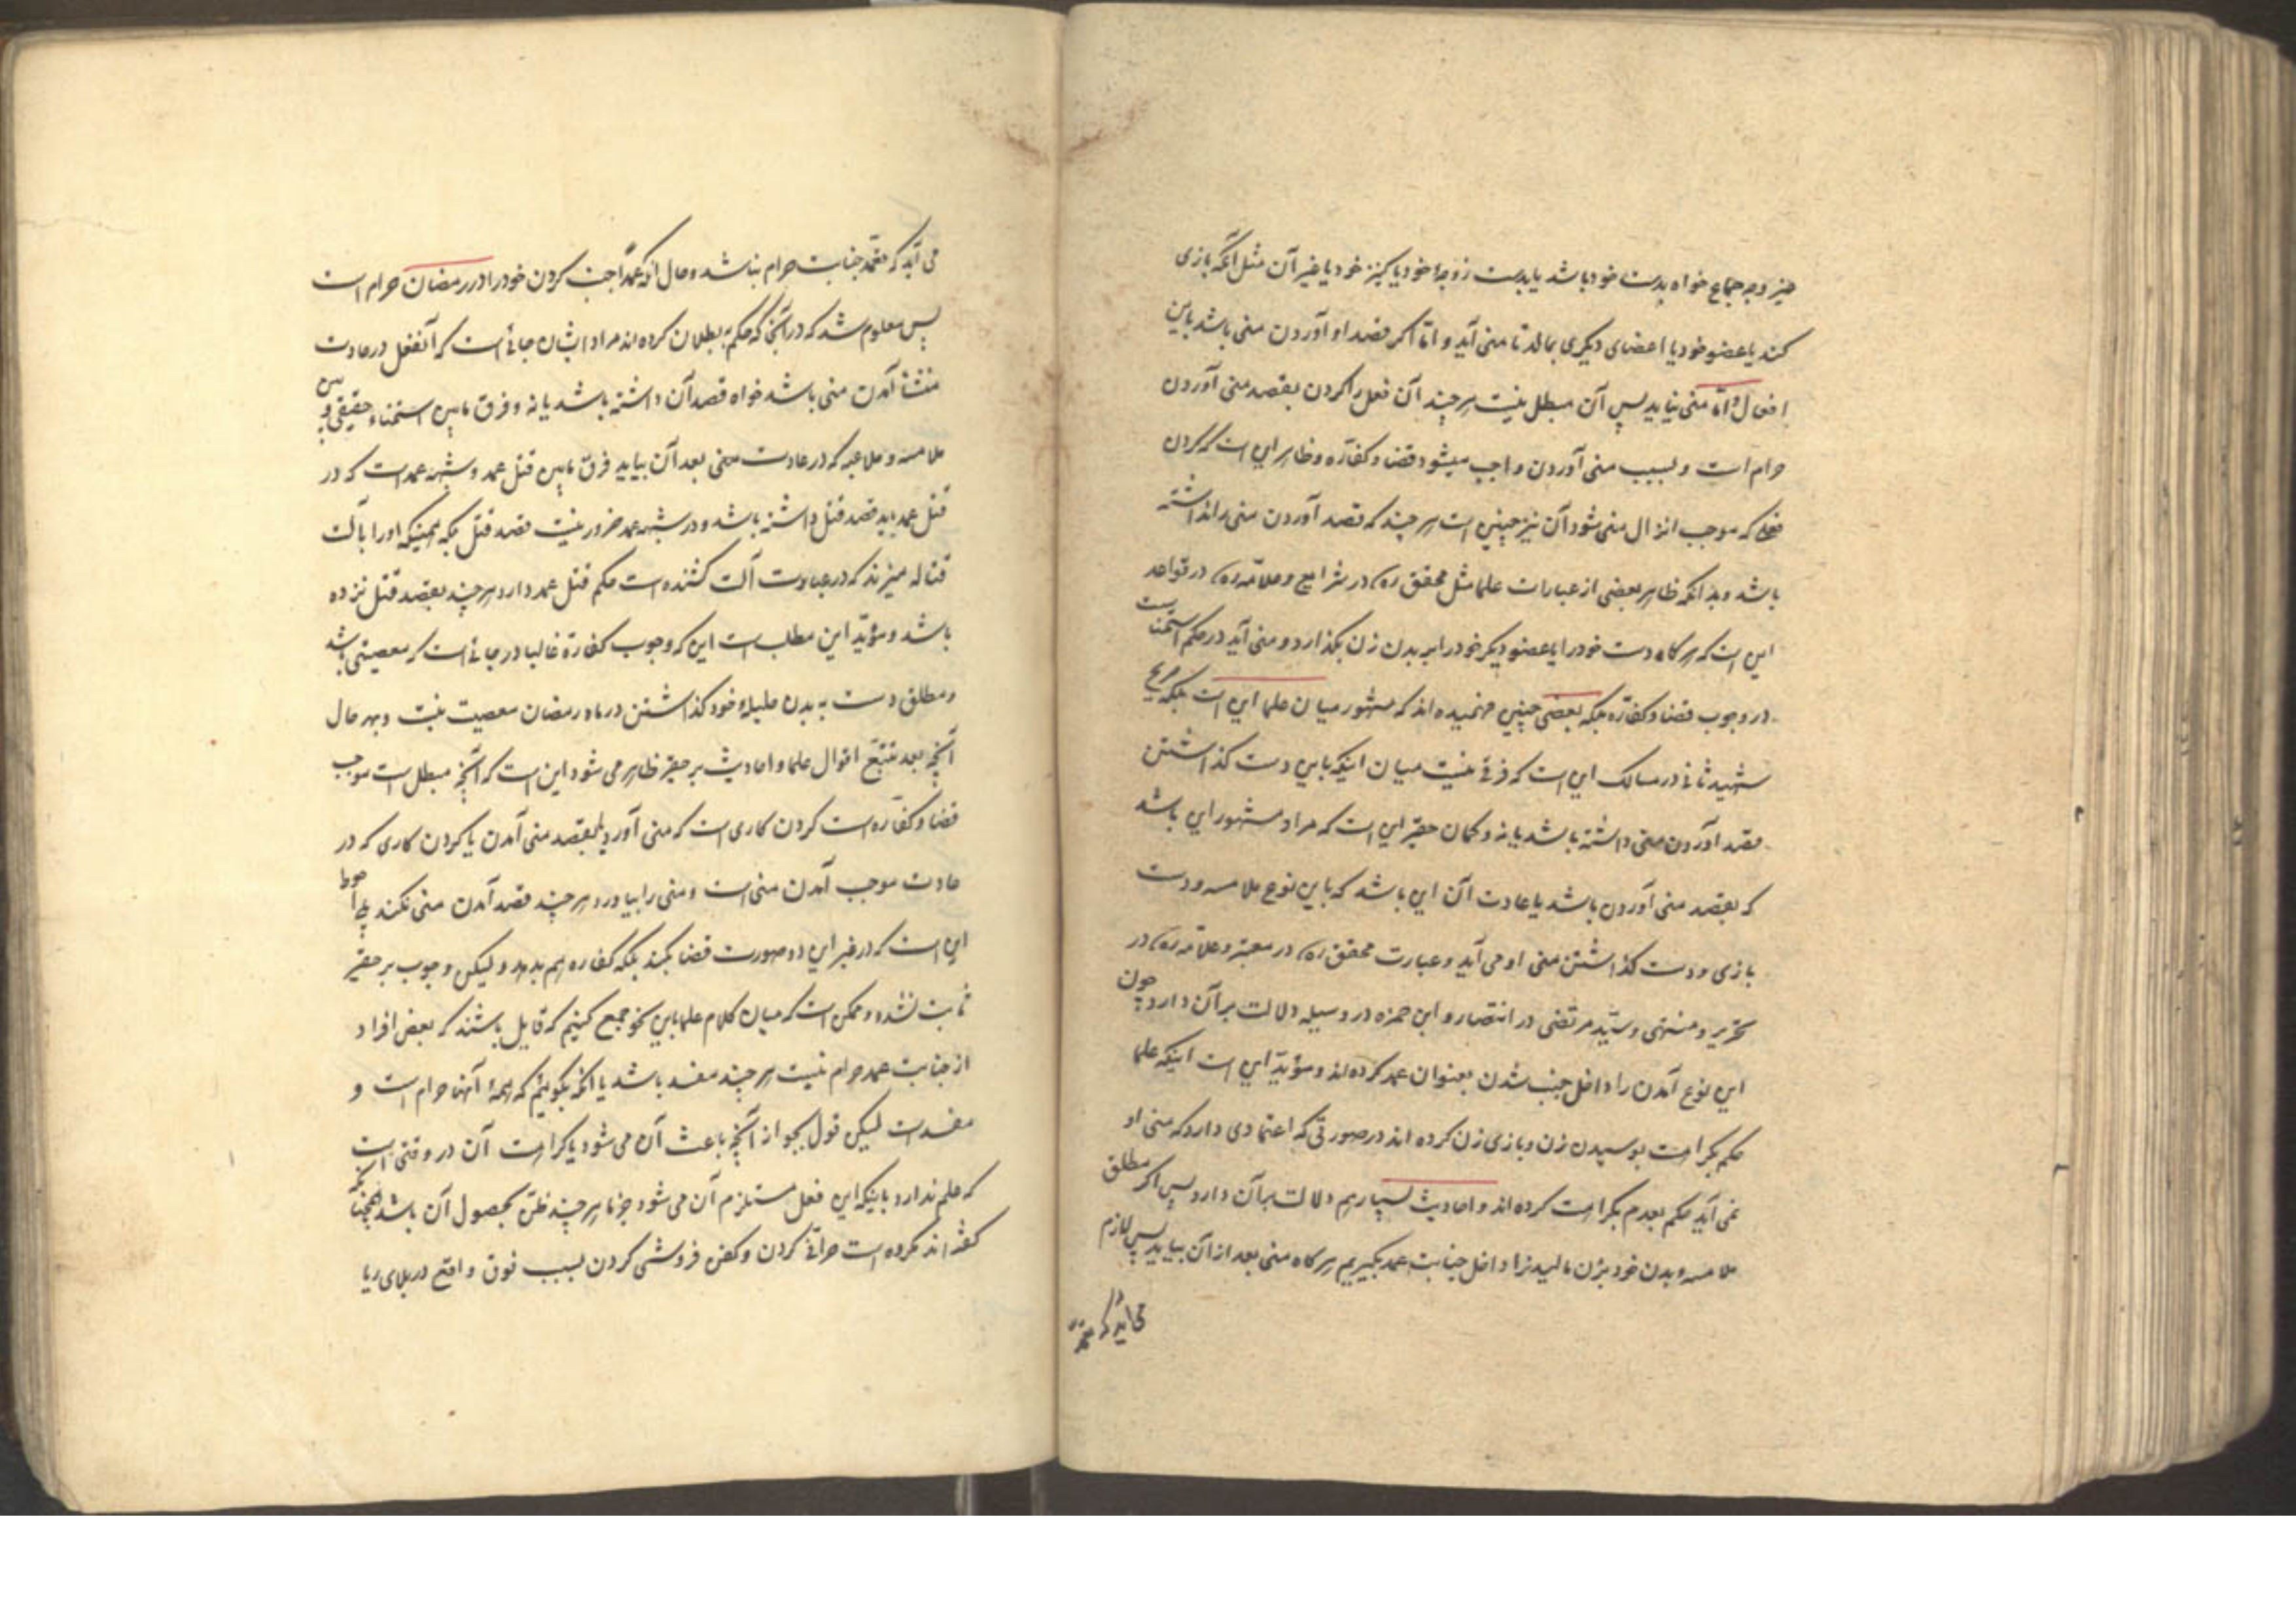 خیر وجه جماع خواه بدست خود باشد یا بدست زوجهٔ خود یا کنیز خود یا غیر آن مثل آنکه بازی
کند یا عضو خود یا اعضای دیگری بمالد تا منی آید و امّا اگر قصد او آوردن منی باشد باین
افعال و امّا منی نیاید پس آن مبطل نیست هر چند آن فعل را کردن بقصد منی آوردن
حرام است و بسبب منی آوردن واجب میشود قضا و کفّاره و ظاهر این است که کردن
فعلی که موجب انزال منی شود آن نیز چنین است هر چند که قصد آوردن منی را نداشته
باشد و بدانکه ظاهر بعضی از عبارات علما مثل محقق ره در شرایع و علامّه ره در قواعد
این است که هر گاه دست خود را یا عضو دیگر خود را بر بدن زن بگذارد و منی آید در حکم استمناست
در وجوب قضا و کفّاره بلکه بعضی چنین فهمیده اند که مشهور میان علما این است بلکه صریح
شهید ثانی در مسالک این است که فرقی نیست میان اینکه باین دست گذاشتن
قصد آوردن منی داشته باشد یا نه و گمان حقیر این است که مراد مشهور این باشد
که بقصد منی آوردن باشد یا عادت آن این باشد که باین نوع ملامسه و دست
بازی و دست گذاشتن منی او می آید و عبارت محقق ره در معتبر و علاّمه ره در
تحریر و منتهی و سیّد مرتضی در انتصار و ابن حمزه در وسیله دلالت بر آن دارد چون
این نوع آمدن را داخل جنب شدن بعنوان عمد کرده اند و مؤیّد این است اینکه علما
حکم بکراهت بوسیدن زن و بازی زن کرده اند در صورتی که اعتمادی دارد که منی او
نمی آید حکم بعدم بکراهت کرده اند و احادیث بسیار هم دلالت بر آن دارد پس اگر مطلق
ملامسه و بدن خود بزن مالیدن را داخل جنابت عمد بگیریم هر گاه منی بعد از آن بیاید پس لازم
می آید که تعمّد
می آید که تعمّد جنابت حرام نباشد و حال آنکه عمداً جنب کردن خود را در رمضان حرام است
پس معلوم شد که در آنجا که حکم به بطلان کرده اند مراد ایشان جائی است که آنفعل در عادت
منشأ آمدن منی باشد خواه قصد آن داشته باشد یا نه و فرق مابین استمناء حقیقی و بین
ملامسه و ملاعبه که در عادت منی بعد آن بیاید فرق مابین قتل عمد و شبه عمد است که در
قتل عمد باید قصد قتل داشته باشد و در شبه عمد ضرور نیست قصد قتل بلکه همینکه او را بآلت
قتاله میزند که در عادت آلت کشنده است حکم قتل عمد دارد هر چند بقصد قتل نزده
باشد و مؤیّد این مطلب است این که وجوب کفّارة غالبا در جائی است که معصیتی باشد
و مطلق دست به بدن حلیلهٔ خود گذاشتن در ماه رمضان معصیت نیست و بهر حال
آنچه بعد تتبّع اقوال علما و احادیث بر حقیر ظاهر می شود این است که آنچه مبطل است و موجب
قضا و کفّاره است کردن کاری است که منی آورد یا بقصد منی آمدن یا کردن کاری که در
عادت موجب آمدن منی است و منی را بیاورد هر چند قصد آمدن منی نکند بلی احوط
این است که در غیر این دو صورت قضا بکند بلکه کفاره هم بدهد و لیکن وجوب بر حقیر
ثابت نشده و ممکن است که میان کلام علما باین نحو جمع کنیم که قایل باشند که بعض افراد
از جنابت عمد حرام نیست هر چند مفسد باشد یا آنکه بگوئیم که همهٔ آنها حرام است و
مفسد است لیکن قول بجواز آنچه باعث آن می شود یا کراهت آن در وقتی است
که علم ندارد باینکه این فعل مستلزم آن می شود جزما هر چند ظن بحصول آن باشد همچنانکه
گفته اند مکروه است صرافی کردن و کفن فروشی کردن بسبب خوف واقع در بلای ربا